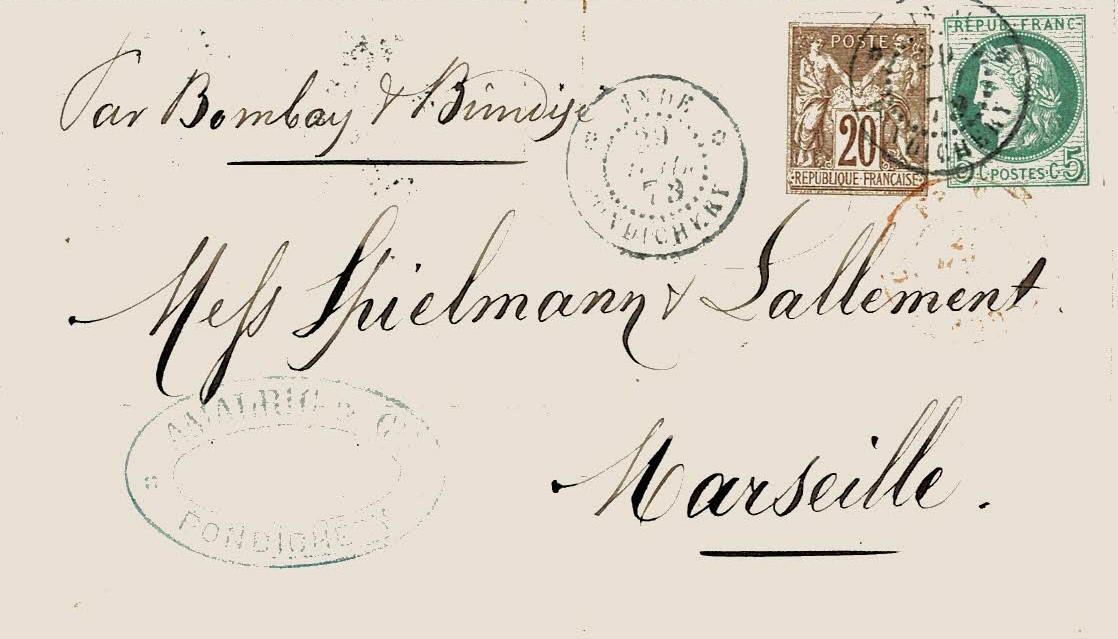 Par Bombay & Brindisi
INDE
78
PONDICHERY
POSTE
20
REPUBLIQUE FRANÇAISE
REPUB. FRANC.
C. POSTES C. 5
Mess Spielmann & Lallement.
AMALRIC & C
PONDICHERY
Marseille.